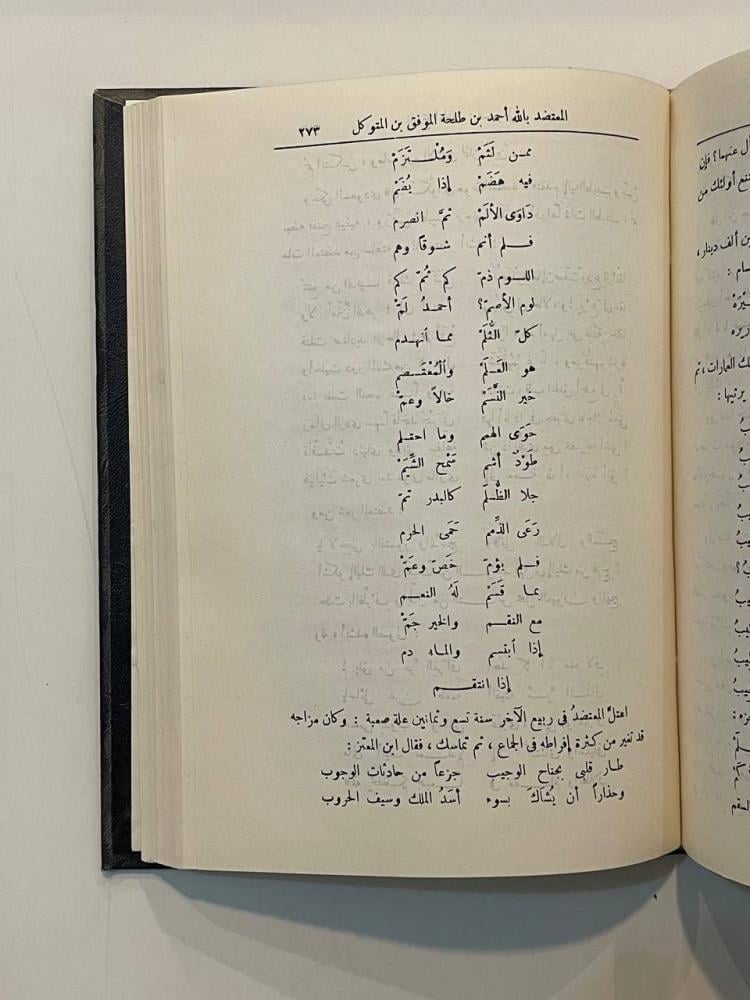 المعتضد بالله أحمد بن طلحة الموفق بن المتوكل ٢٧٣
ممن لَثَمْ وَمُلْـتَزَمْ
فيه هَضَمْ إذا يُضَمْ
دَاوَى الألَمْ ثمَّ انصرم
فـلـم أنم شـوقاً وهم
اللـوم ذمّ كم ثُمّ كم
لوم الأصمّ؟ أحمـدُ لَمْ
كلّ الثُّلَمْ ممـا انهـدم
هو العَـلَمْ والمُعْتَـصم
خير النَّسَمْ خالاً وعمّ
حَوَى الهمم وما احتـلم
طَوْدٌ أشم سَمْح الشِّيَمْ
جلا الظُّلَمْ كالبدر تمّ
رَعَى الذِّمم حَمَى الحرم
فـلم يؤمّ خَصّ وعَمّْ
بمـا قَسَمْ لَهُ النعـم
مع النقـم والخير جَمّْ
إذا ابتسم والمـاء دم
إذا انتقـم
اعتلّ المعتضدُ فى ربيع الآخر سنة تسع وثمانين علة صعبة : وكان مزاجه
قد تغير من كثرة إفراطه فى الجماع ، ثم تماسك ، فقال ابن المعتز :
طـار قلبى بجناح الوجيب جزعاً من حادثات الوجوب
وحذاراً أن يُشَاكَ بسوء أسَدُ الملك وسيف الحروب
ل عنهما ؟ فإن
نفع أولئك من
ين ألف دينار ،
سام :
لك العارات ، ثم
يرثيها :